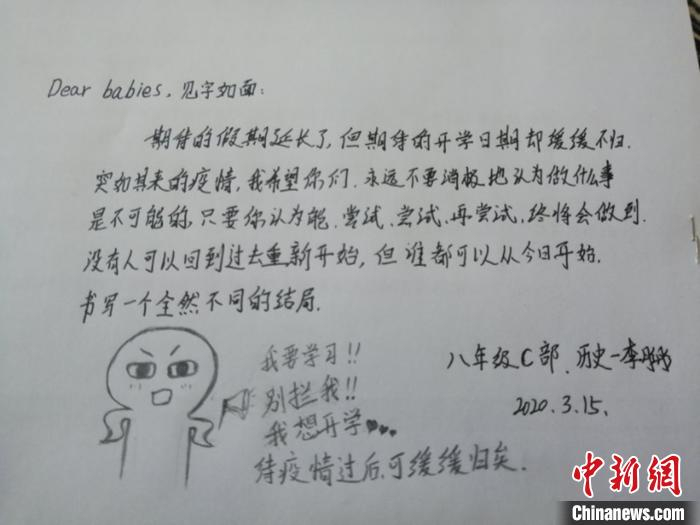 Dear babies，见字如面：
期待的假期延长了，但期待的开学日期却缓缓不归.
突如其来的疫情，我希望你们.永远不要消极地认为做什么事
是不可能的,只要你认为能.尝试.尝试.再尝试.终将会做到.
没有人可以回到过去重新开始，但谁都可以从今日开始.
书写一个全然不同的结局.
我要学习!!
别拦我!!
我想开学
待疫情过后,可缓缓归矣.
八年级C部.历史-李
2020.3.15.
中新网
Chinanews.com